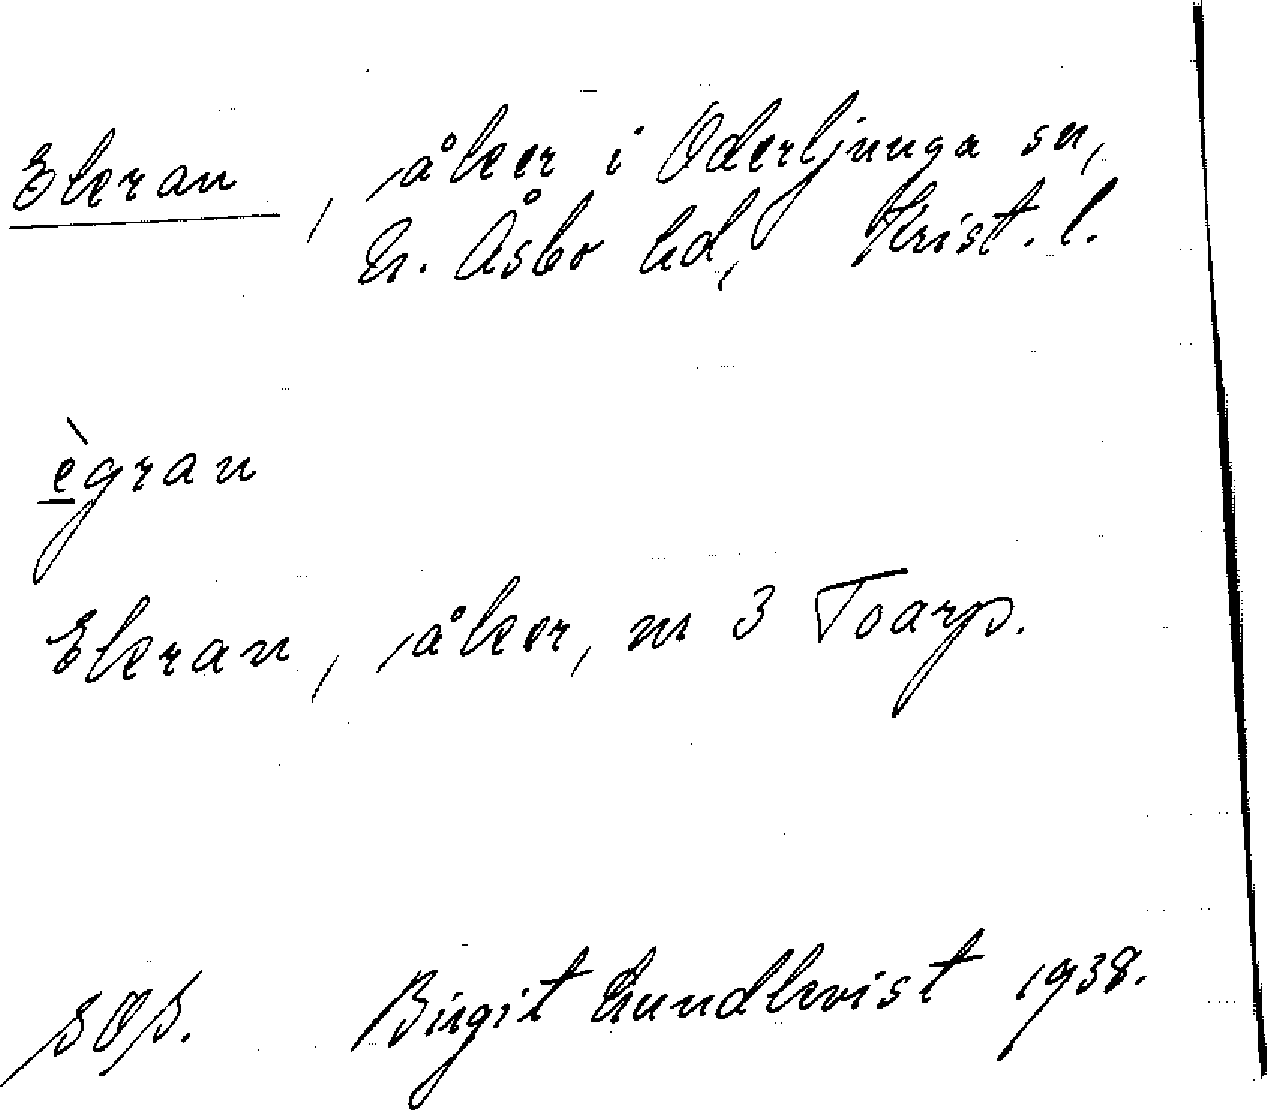 Ekran, åker i Oderljunga sn,
N. Åsbo hd, Krist. l.
ègran
Ekran, åker, nr 3 Toarp.
SOS. Birgit Lundkvist 1938.